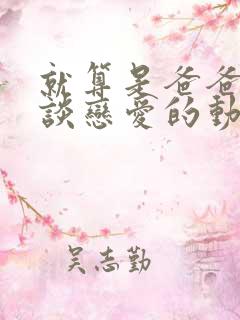 就算是爸爸
談戀愛的動
吳志勤